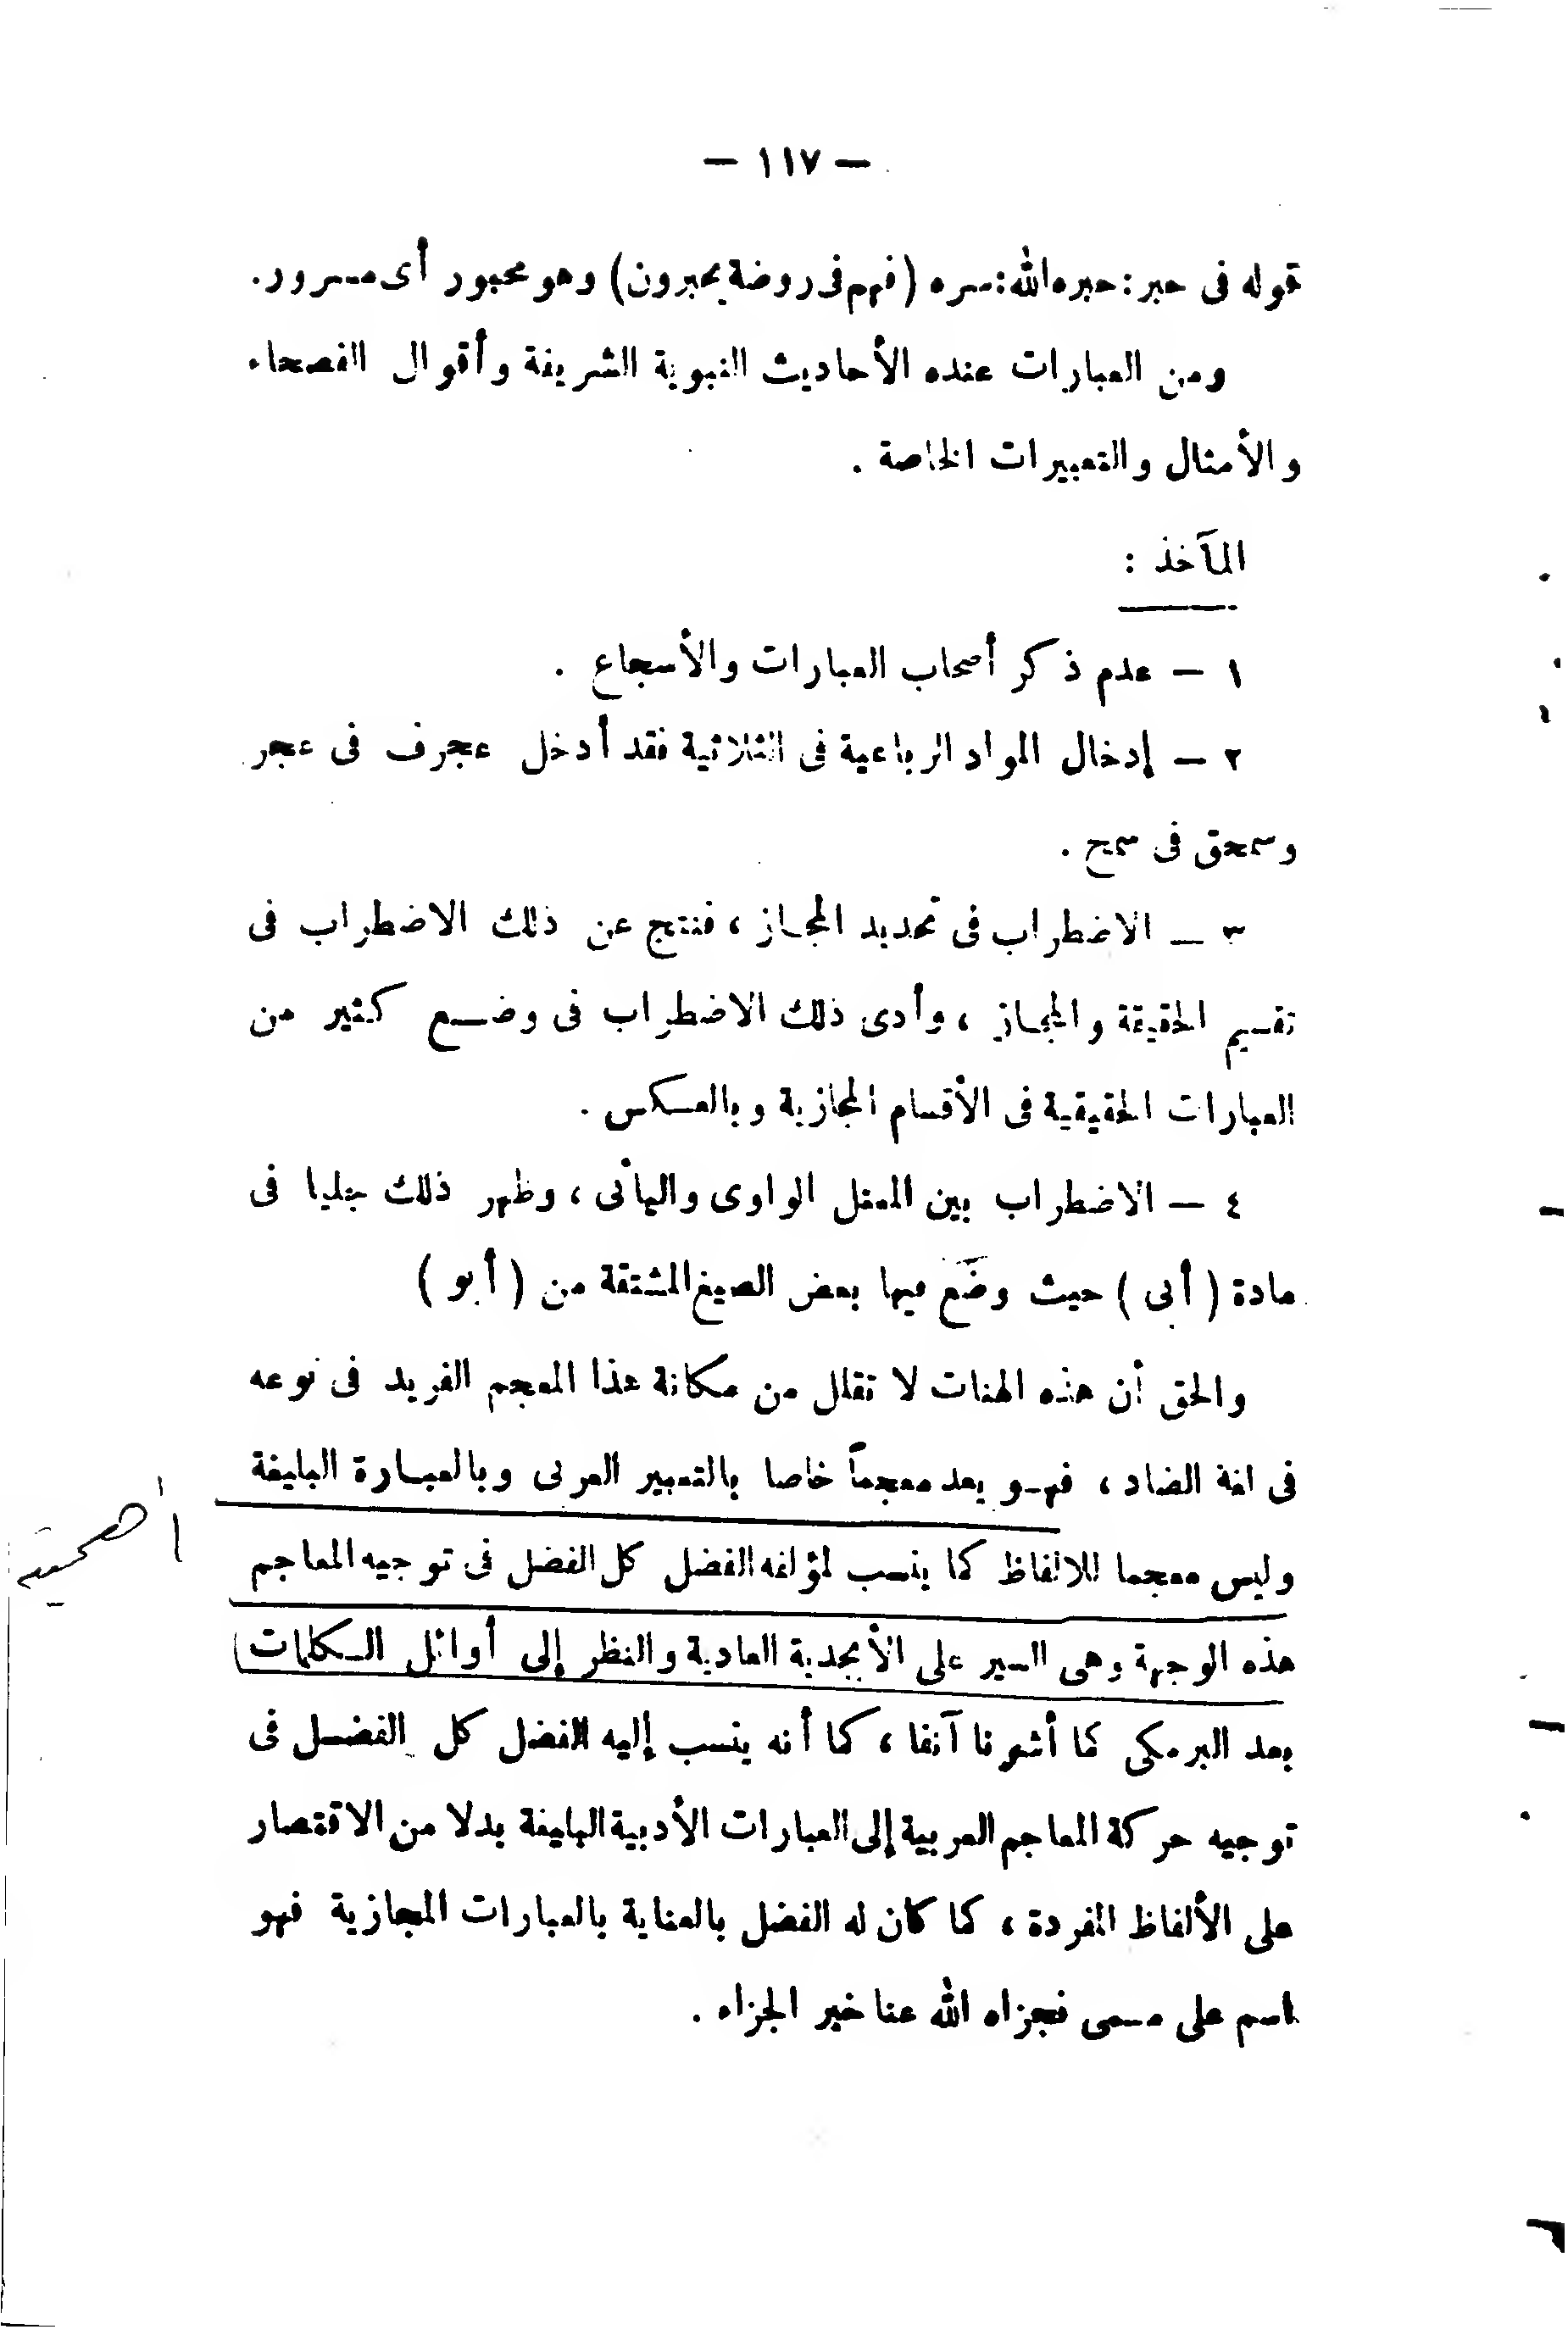 — ١١٧ —
قوله فى حبر : حبره الله : سره (فهم فى روضة يحبرون) وهو محبور أى مسرور.
ومن العبارات عنده الأحاديث النبوية الشريفة وأقوال الفصحاء
والأمثال والتعبيرات الخاصة .
المآخذ :
١ — عدم ذكر أصحاب العبارات والأسجاع .
٢ — إدخال المواد الرباعية فى الثلاثية فقد أدخل عجرف فى عجر
وسمحق فى سمح .
٣ — الاضطراب فى تحديد المجاز ، فنتج عن ذلك الاضطراب فى
تقسيم الحقيقة والمجاز ، وأدى ذلك الاضطراب فى وضع كثير من
العبارات الحقيقية فى الأقسام المجازية وبالعكس .
٤ — الاضطراب بين المعتل الواوى واليائى ، وظهر ذلك جليا فى
مادة ( أبى ) حيث وضَع فيها بعض الصيغ المشتقة من ( أبو )
والحق أن هذه الهنات لا تقلل من مكانة هذا المعجم الفريد فى نوعه
فى لغة الضاد ، فهو يعد معجماً خاصا بالتعبير العربى وبالعبارة البليغة
أهميته
وليس معجما للالفاظ كما ينسب لمؤلفه الفضل كل الفضل فى توجيه المعاجم
هذه الوجهة وهى السير على الأبجدية العادية والنظر إلى أوائل الكلمات
بعد البرمكى كما أشرنا آنفا ، كما أنه ينسب إليه الفضل كل الفضل فى
توجيه حركة المعاجم العربية إلى العبارات الأدبية البليغة بدلا من الاقتصار
على الألفاظ المفردة ، كما كان له الفضل بالعناية بالعبارات المجازية فهو
اسم على مسمى فجزاه الله عنا خير الجزاء .